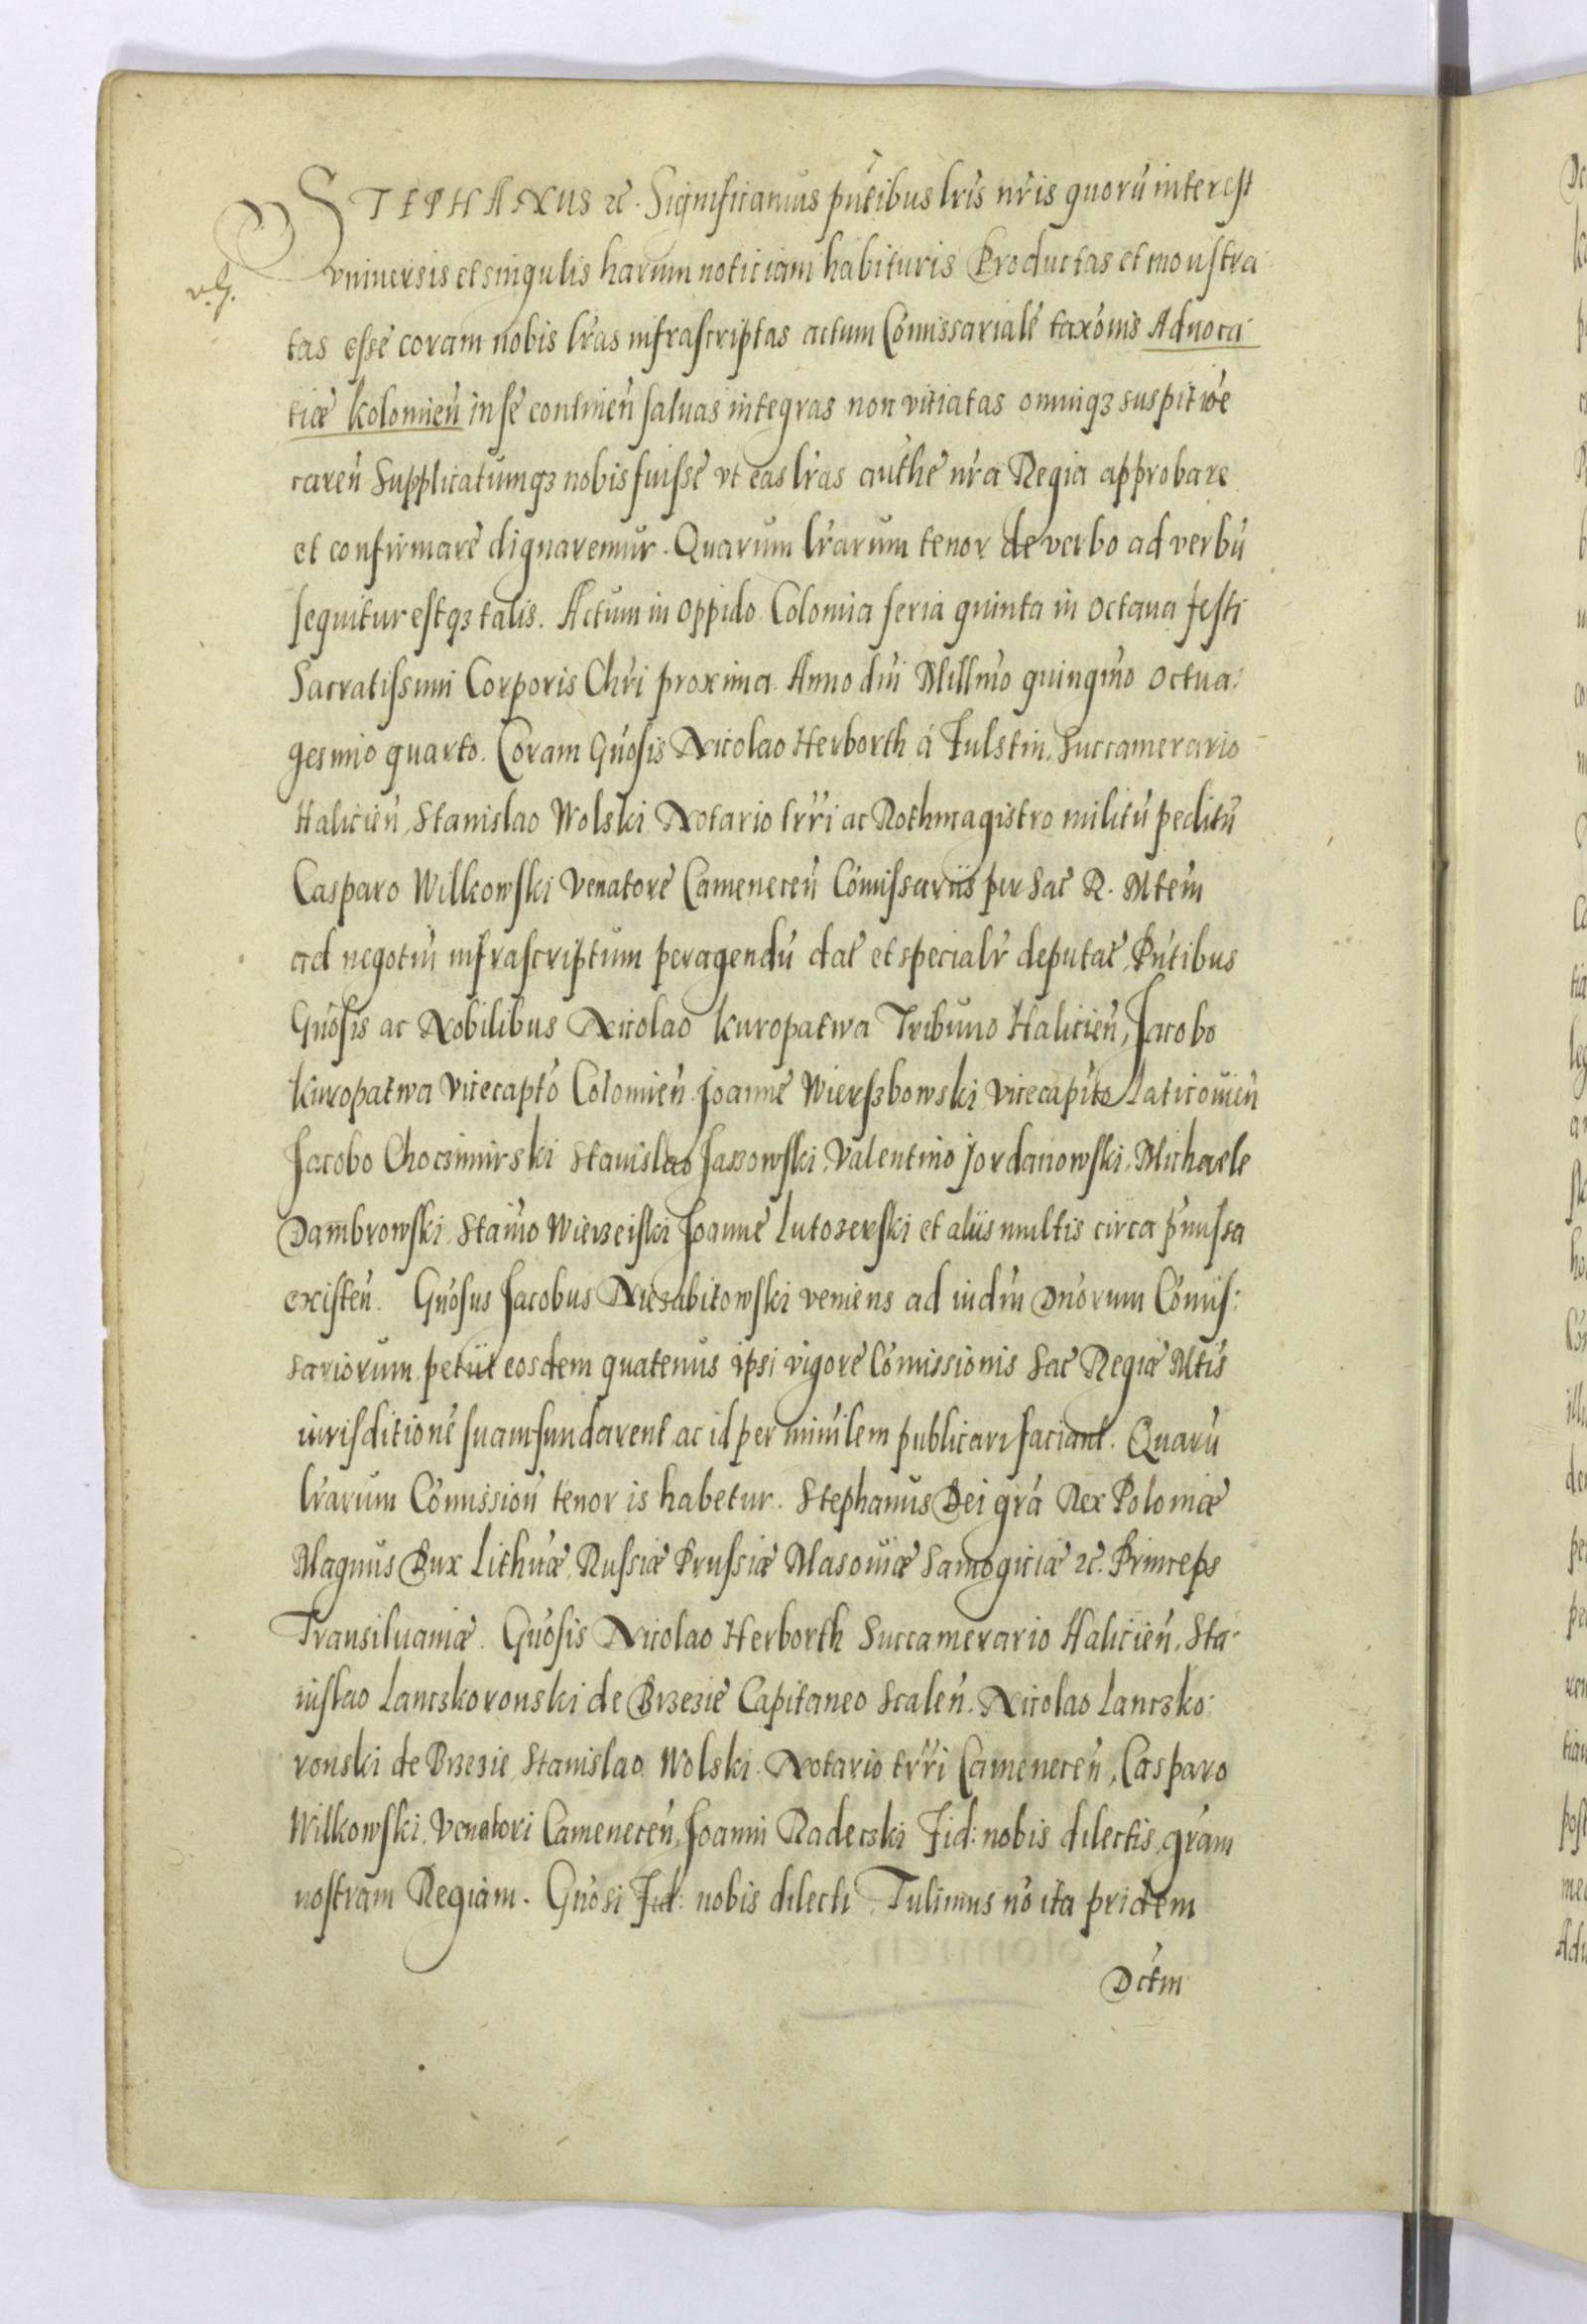 STEPHANUS &c. Significamus pñtibus lr̃is nr̃is quorũ interest
v.g.
vniuersis et singulis harum noticiam habituris Productas et monstra-
tas esse coram nobis lr̃as infrascriptas actum Cõmissarialẽ taxõnis Aduoca-
tiæ Kolomieñ in se continen̄ saluas integras non vitiatas omniqȝ suspitiõe
careñ Supplicatumqȝ nobis fuisse vt eas lr̃as authẽ nr̃a Regia approbare
et confirmare dignaremur. Quarum lr̃arum tenor de verbo ad verbũ
sequitur estqȝ talis. Actum in oppido Colomia feria quinta in octaua festi
Sacratissimi Corporis Chr̃i proxima Anno dñi Millm̃o quingm̃o octua:
gesimo quarto. Coram Gñosis Nicolao Herborth á Fulstin, Succamerario
Halicieñ, Stanislao Wolski Notario tr̃ri ac Rothmagistro militũ peditũ
Casparo Wilkowski Venatore Cameneceñ Cõmissariis per Sac̃ R. Mtem̃
ad negotiũ infrascriptum peragendũ dat̃ et specialr̃ deputat̃, Pñtibus
Gñosis ac Nobilibus Nicolao Kuropatwa Tribuno Halicieñ, Jacobo
Kuropatwa Vicecapt̃o Colomieñ Joanne Wierszbowski vicecapit̃o Laticouieñ
Jacobo Choczimirski Stanislao Jaszowski, Valentino Jordanowski, Michaele
Dambrowski, Stan̄io Wierzeiski Joanne Lutozerski et aliis multis circa p̃missa
existeñ. Gñosus Jacobus Niezabitowski veniens ad iudiũ Dñorum Cõmis:
sariorum, petiit eosdem quatenus ipsi vigore Cõmissionis Sac̃ Regiæ Mtis̃
iurisditionẽ suam fundarent, ac id per min̄ilem publicari faciant. Quarũ
lr̃arum Cõmissioñ tenor is habetur. Stephanus Dei grã Rex Poloniæ
Magnus Dux Lithũæ, Russiæ Prussiæ Masouiæ Samogitiæ &c. Princeps
Transiluaniæ. Gñosis Nicolao Herborth Succamerario Halicieñ, Sta-
nislao Lanczkoronski de Brzezie Capitaneo Scaleñ, Nicolao Lanczko:
ronski de Brzezie, Stanislao Wolski Notario tr̃ri Cameneceñ, Casparo
Wilkowski, Venatori Cameneceñ, Joanni Radeczki Fid: nobis dilectis, grãm
nostram Regiam. Gñosi Fid: nobis dilecti Tulimus nõ ita pridem
Dct̃m